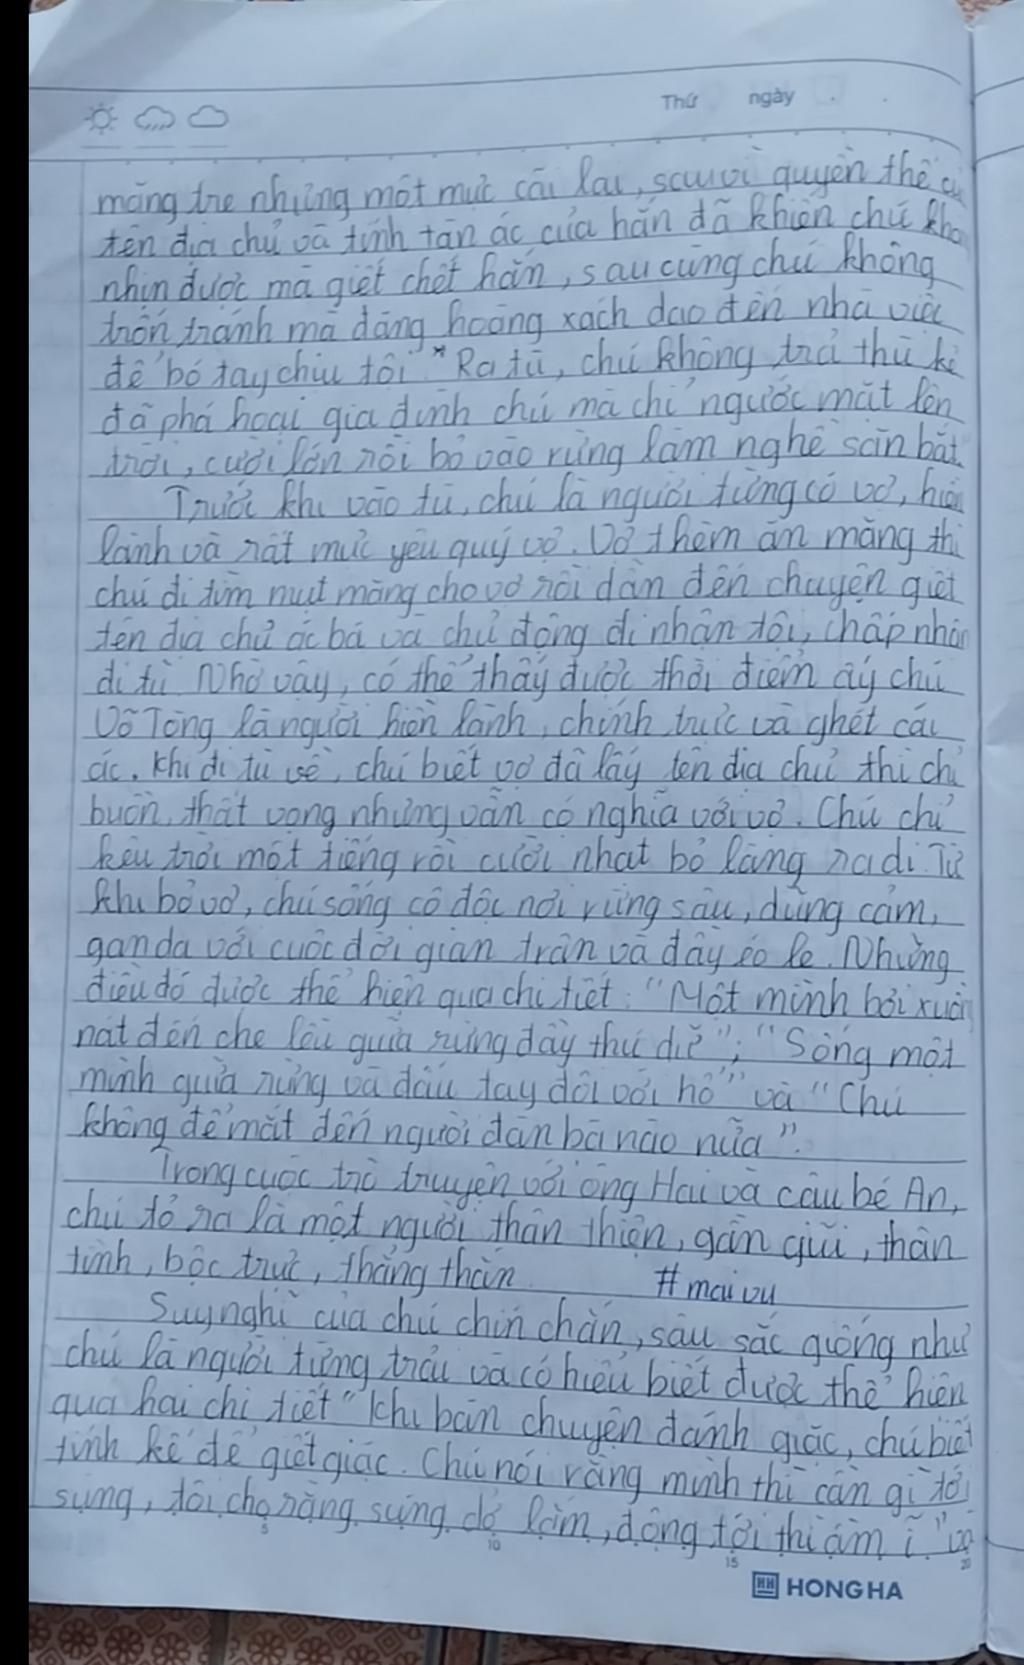 Thứ ngày
măng tre nhưng một mực cãi lại, song vì quyền thế củ
tên địa chủ và tính tàn ác của hắn đã khiến chú khô
nhịn được mà giết chết hắn, sau cùng chú không
trốn tránh mà đàng hoàng xách dao đến nhà việc
để bó tay chịu tội" Ra tù, chú không trả thù kẻ
đã phá hoại gia đình chú mà chỉ ngước mắt lên
trời, cười lớn rồi bỏ vào rừng làm nghề săn bắt.
Trước khi vào tù, chú là người từng có vợ, hiền
lành và rất mực yêu quý vợ. Vợ thèm ăn măng thì
chú đi tìm mụt măng cho vợ rồi dẫn đến chuyện giết
tên địa chủ ác bá và chủ động đi nhận tội, chấp nhận
đi tù. Nhờ vậy, có thể thấy được thời điểm ấy chú
Võ Tòng là người hiền lành, chính trực và ghét cái
ác. Khi đi tù về, chú biết vợ đã lấy tên địa chủ thì chú
buồn, thất vọng nhưng vẫn có nghĩa với vợ. Chú chỉ
kêu trời một tiếng rồi cười nhạt bỏ làng ra đi. Từ
khi bỏ vợ, chú sống cô độc nơi rừng sâu, dũng cảm,
gan dạ với cuộc đời gian truân và đầy éo le. Những
điều đó được thể hiện qua chi tiết: "Một mình bơi xuồn
nát đến che lều giữa rừng đầy thú dữ"; "Sống một
mình giữa rừng và đấu tay đôi với hổ" và "Chú
không để mắt đến người đàn bà nào nữa".
Trong cuộc trò truyện với ông Hai và cậu bé An,
chú tỏ ra là một người thân thiện, gần gũi, thân
tình, bộc trực, thẳng thắn #maivy
Suy nghĩ của chú chín chắn, sâu sắc giống như
chú là người từng trải và có hiểu biết được thể hiện
qua hai chi tiết "Khi bàn chuyện đánh giặc, chú biết
tính kế để giết giặc. Chú nói rằng mình thì cần gì tới
súng, tôi cho rằng súng dở lắm, động tới thì ầm ĩ" và
5 10 15 20
HH HONG HA